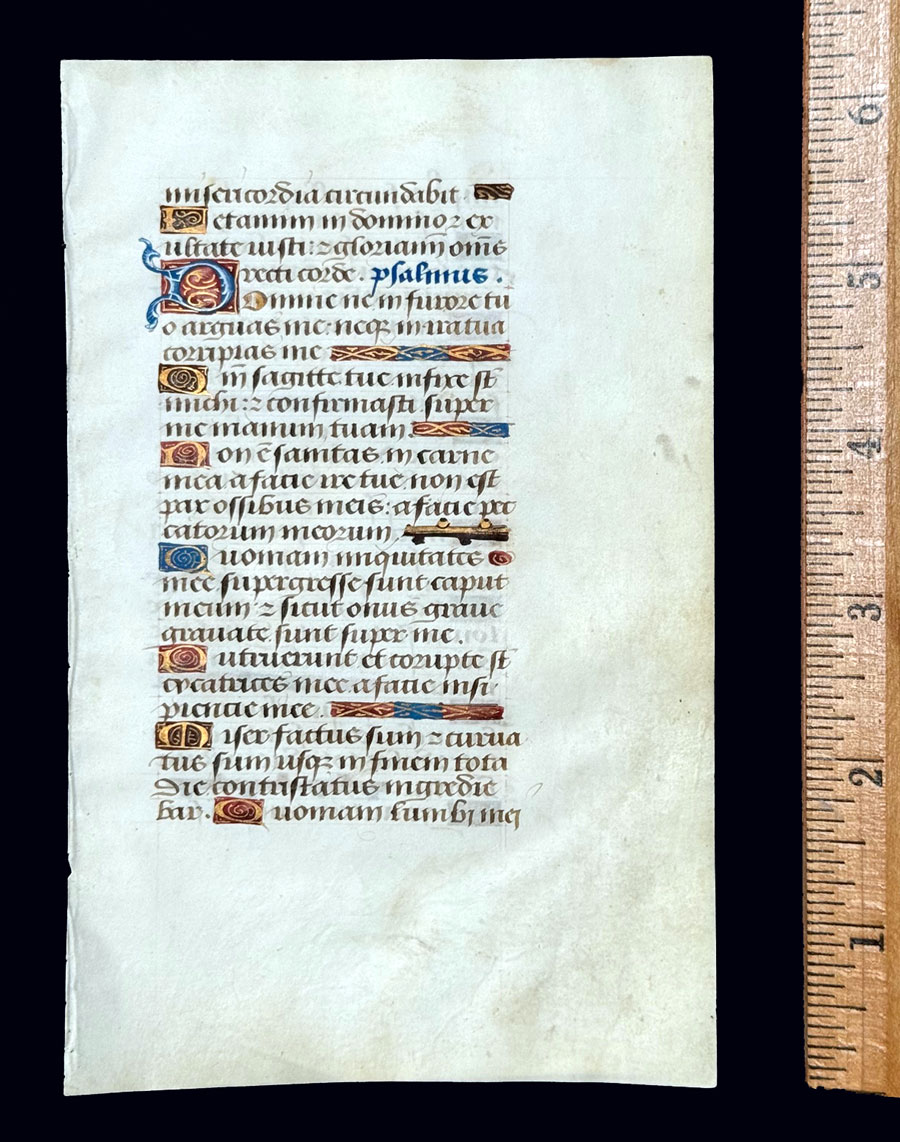 misericordia circundabit
Letamini in domino ⁊ ex
ultate iusti: ⁊ gloriamī om̄s
recti corde. psalmus.
Domine ne in furore tu
o arguas me: neqꝫ in ira tua
corripias me
Qm̄ sagitte tue infixe st̄
michi: ⁊ confirmasti super
me manum tuam.
Non ē sanitas in carne
mea a facie ire tue non est
pax ossibus meis: a facie pec
catorum meorum
Quoniam iniquitates
mee supergresse sunt caput
meum ⁊ sicut onus graue
grauate sunt super me.
Putruerunt et corupte st̄
cycatrices mee. a facie insi
piencie mee.
Miser factus sum ⁊ curua
tus sum usqꝫ in finem tota
die contristatus ingredie
bar. Quoniam lumbi mei
6
5
4
3
2
1